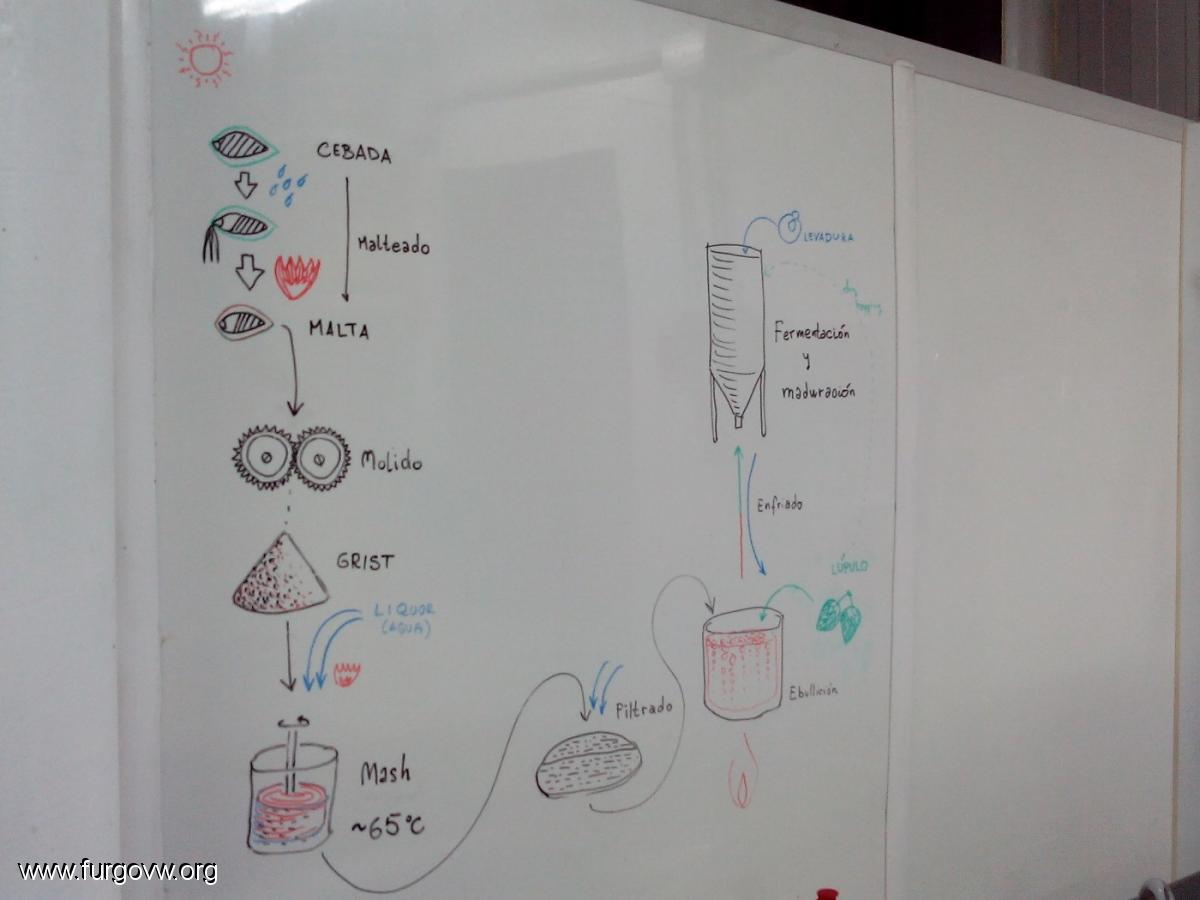 CEBADA
Malteado
MALTA
Molido
GRIST
LIQUOR
(AGUA)
Mash
~65°C
Filtrado
LEVADURA
dry
hopping
Fermentación
y
maduración
Enfriado
LÚPULO
Ebullición
www.furgovw.org